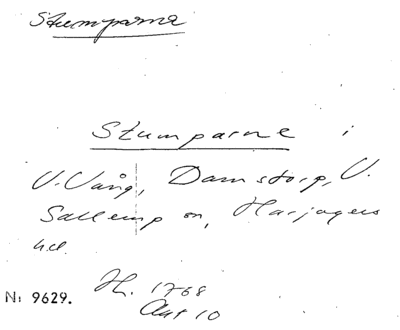 Stumparna
Stumparne i
V. Vång, Damstorp, V.
Sallerup sn, Harjagers
hd.
H. 1768
Akt 10
Nr 9629.